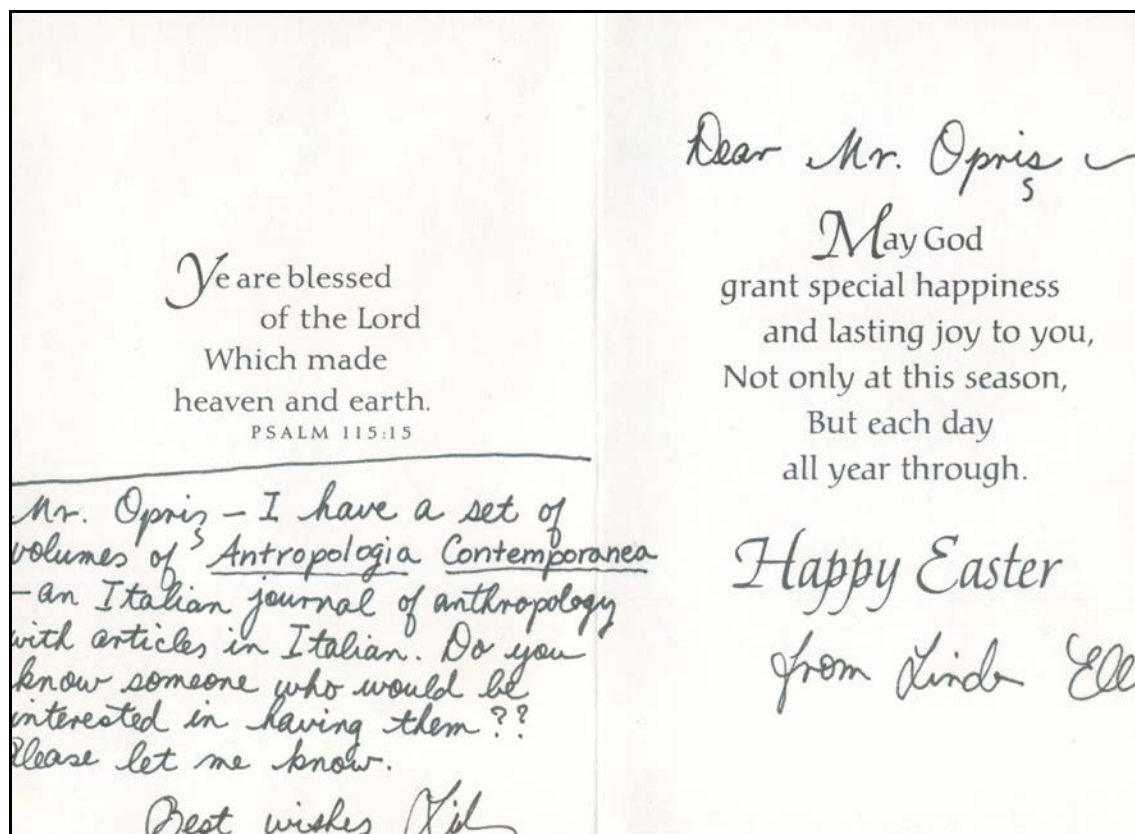 Ye are blessed
of the Lord
Which made
heaven and earth.
PSALM 115:15
Mr. Opris - I have a set of
volumes of Antropologia Contemporanea
- an Italian journal of anthropology
with articles in Italian. Do you
know someone who would be
interested in having them??
Please let me know.
Best wishes
Dear Mr. Opris -
May God
grant special happiness
and lasting joy to you,
Not only at this season,
But each day
all year through.
Happy Easter
from Linda